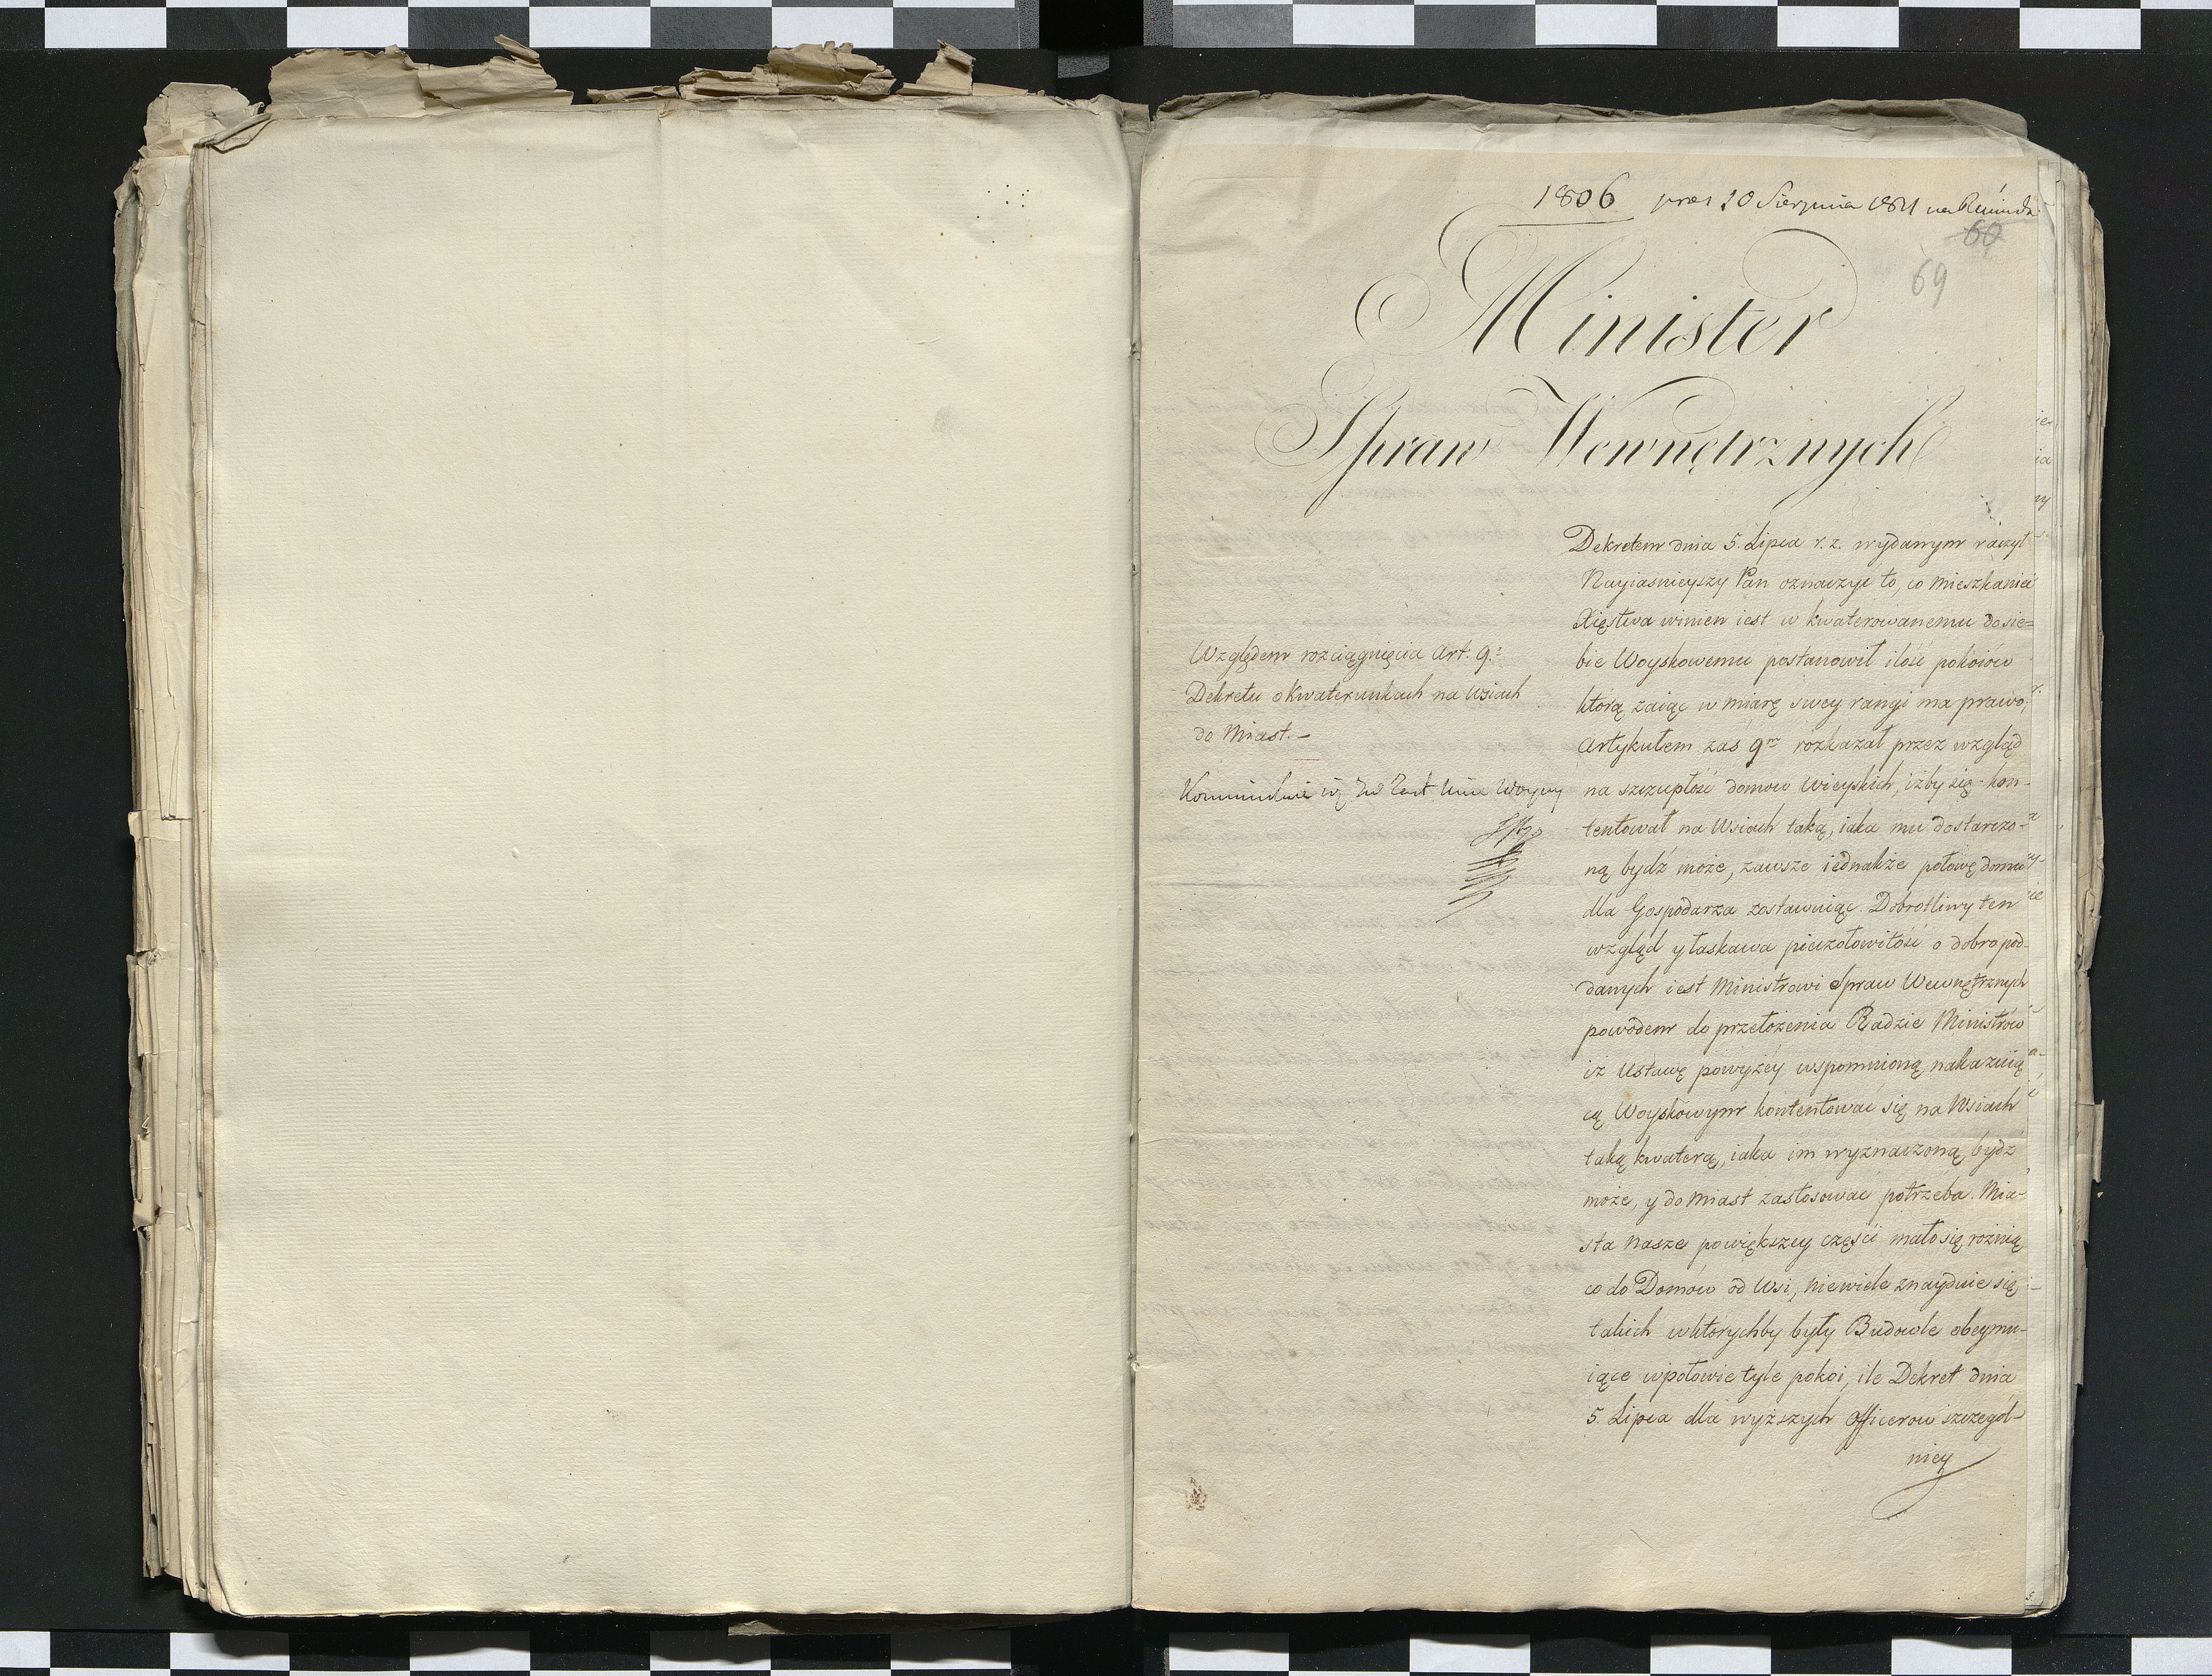 1806 pres 20 Sierpnia 1811 na
60
69
Minister
Spraw Wewnętrznych
Względem rozciągnięcia Art. 9.º
Dekretu o Kwaterunkach na Wsiach
do Miast. –
Woyny
Dekretem dnia 5. Lipca r. z. wydanym raczył
Nayiasnieyszy Pan oznaczyć to, co Mieszkaniec
Xięstwa winien iest w kwaterowanemu do sie=
bie Woyskowemu postanowił ilość pokoiów
którą zaiąc w miarę swey rangi ma prawo,
Artykułem zaś 9m rozkazał przez wzgląd
na szczupłość domow Wieyskich, iżby się kon-
tentował na Wsiach taką, iaka mu dostarczo-
ną bydź może, zawsze iednakże połowę domu
dla Gospodarza zostawuiąc. Dobrotliwy ten
wzgląd y łaskawa pieczołowitość o dobro pod-
danych iest Ministrowi Spraw Wewnętrznych
powodem do przełożenia Radzie Ministrów
iż Ustawę powyżey wspomnioną nakazuią
cą Woyskowym kontentować się na Wsiach
taką kwaterą, iaka im wyznaczoną bydź
może, y do Miast zastosować potrzeba. Mia-
sta Nasze powiększey części mało się rożnią
co do Domów od Wsi, niewiele znayduie się
takich wktorychby były Budowle obeymu-
iące wpołowie tyle pokoi, ile Dekret dnia
5. Lipca dla wyższych Officerow szczegól-
niey